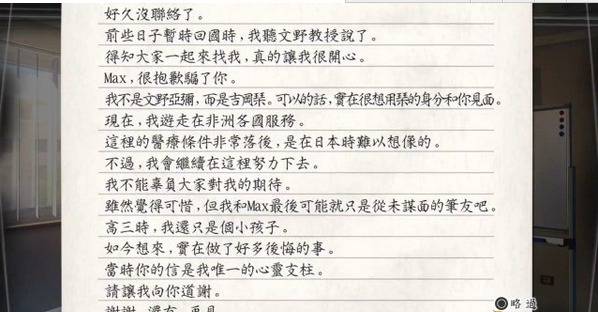 好久沒聯絡了。
前些日子暫時回國時，我聽文野教授說了。
得知大家一起來找我，真的讓我很開心。
Max，很抱歉騙了你。
我不是文野亞彌，而是吉岡琹。可以的話，實在很想用琹的身分和你見面。
現在，我遊走在非洲各國服務。
這裡的醫療條件非常落後，是在日本時難以想像的。
不過，我會繼續在這裡努力下去。
我不能辜負大家對我的期待。
雖然覺得可惜，但我和Max最後可能就只是從未謀面的筆友吧。
高三時，我還只是個小孩子。
如今想來，實在做了好多後悔的事。
當時你的信是我唯一的心靈支柱。
請讓我向你道謝。
謝謝，還有，再見
略過